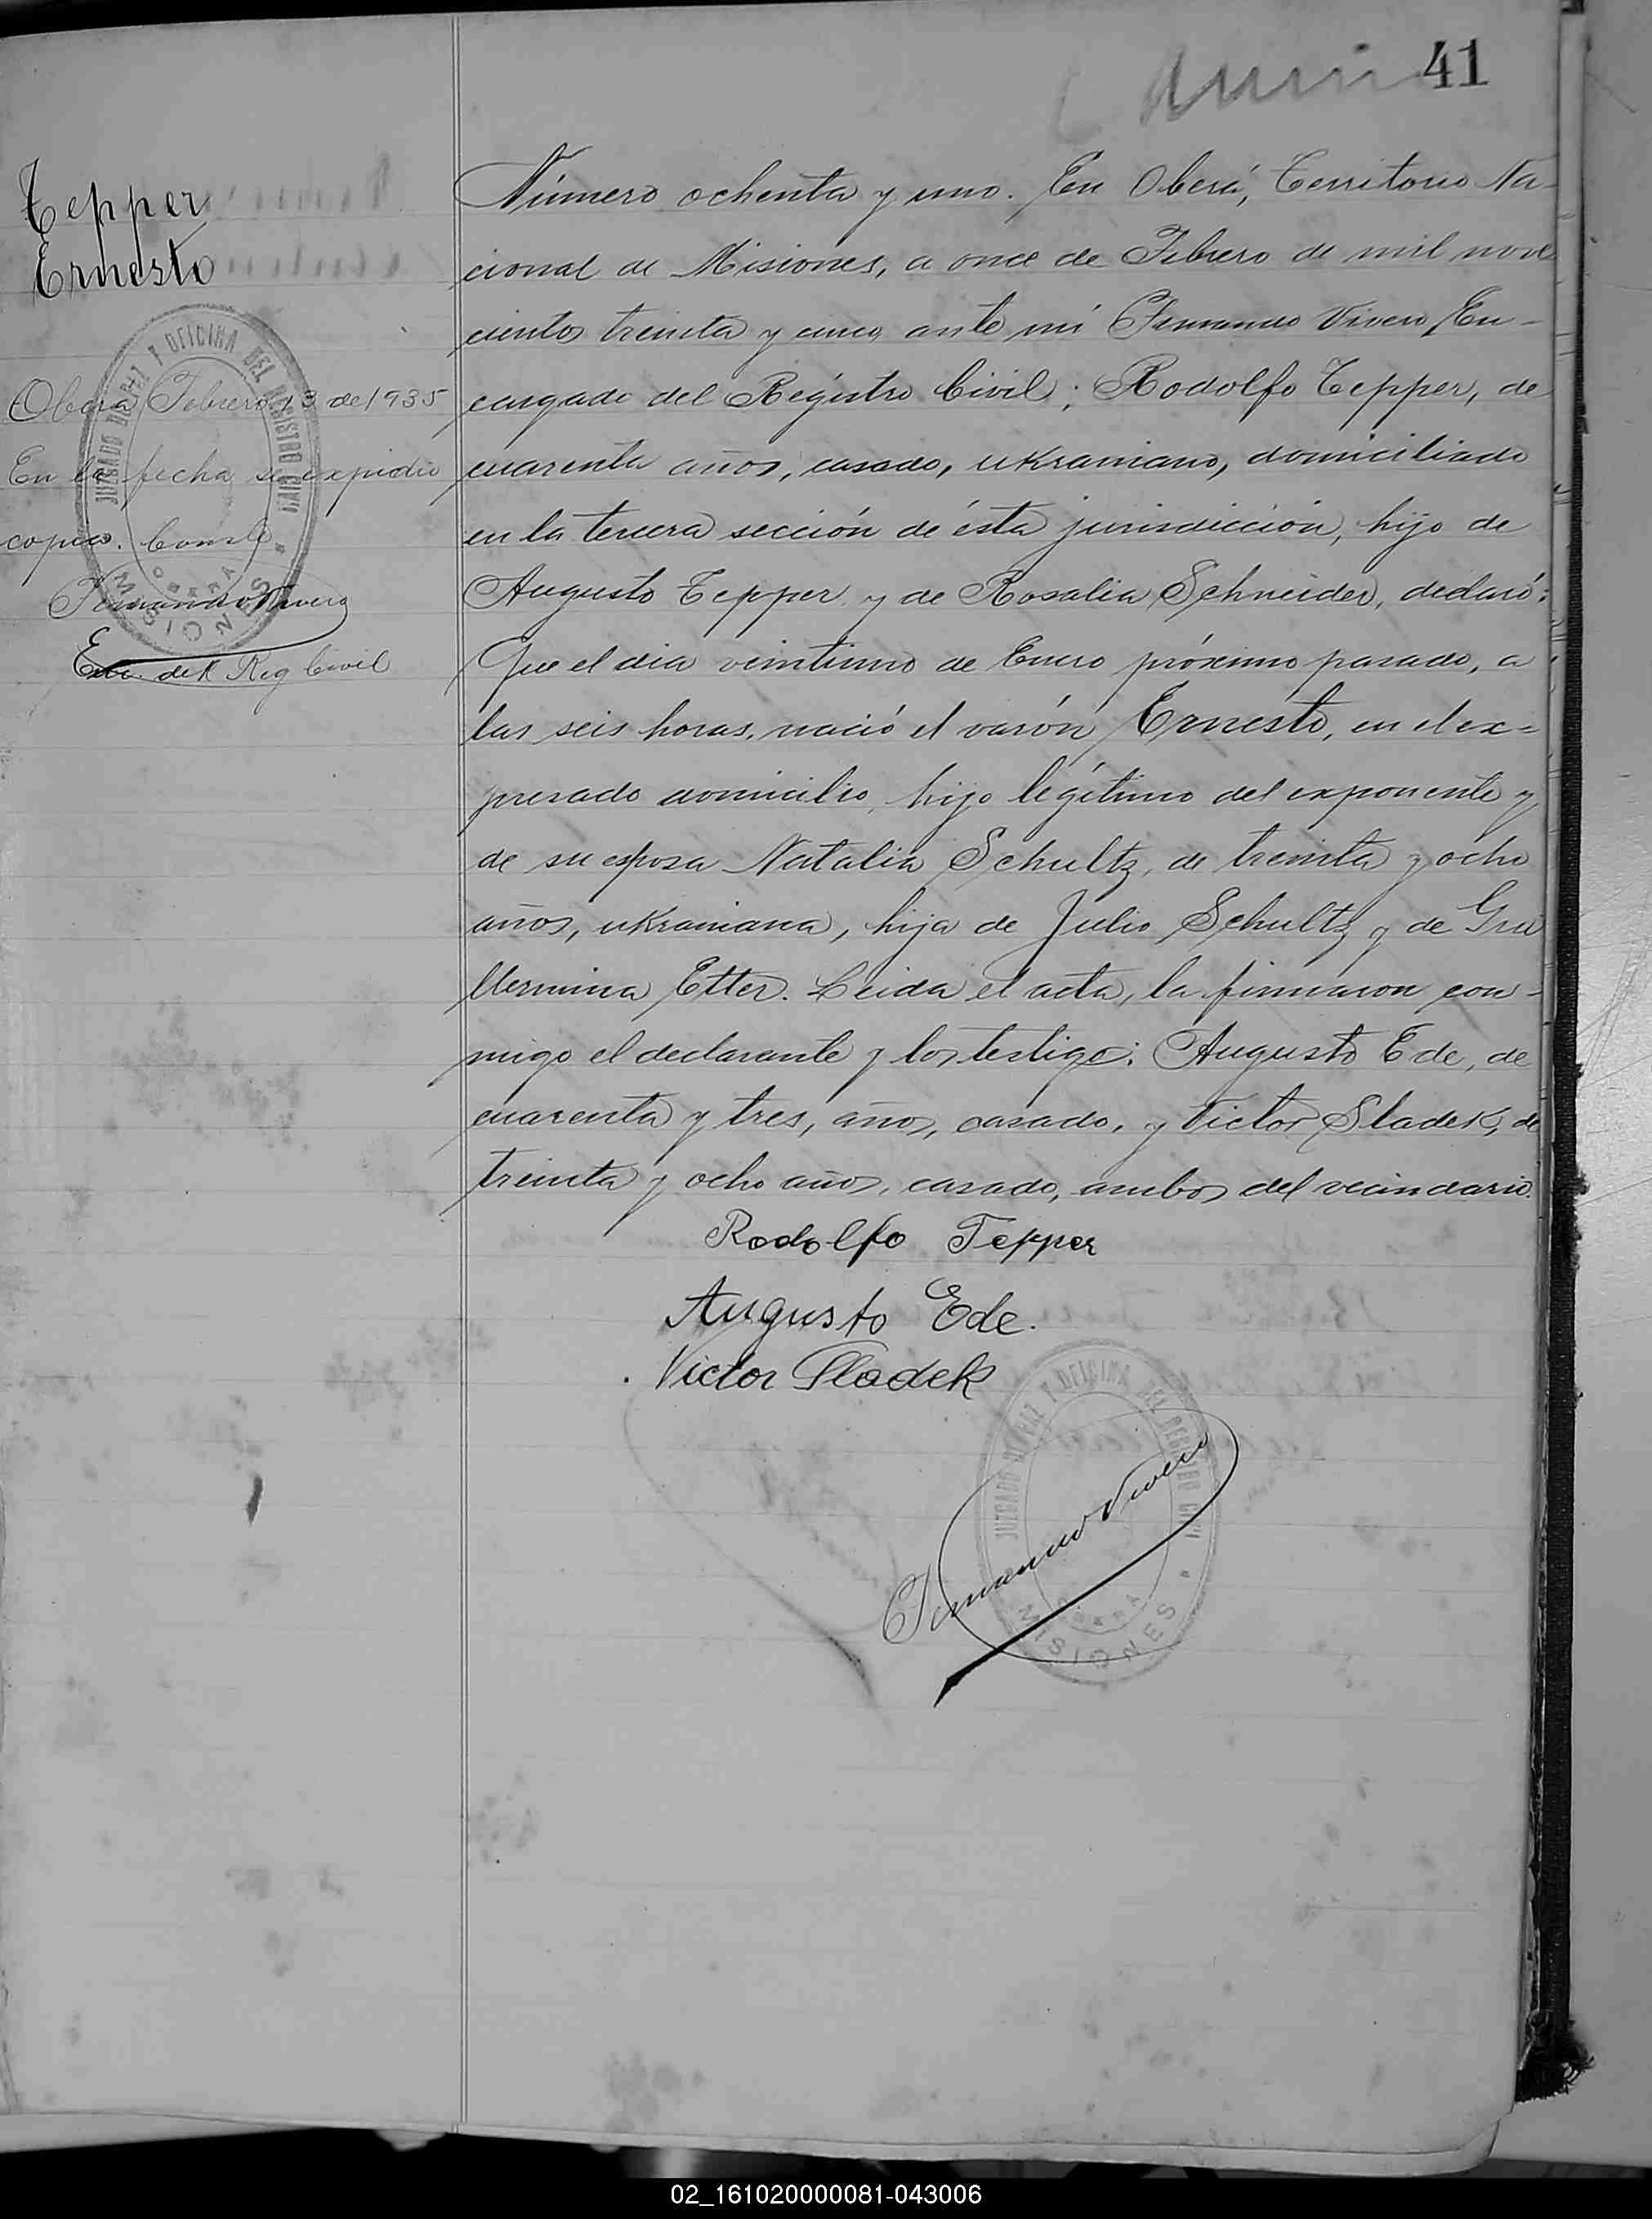 41
Tepper
Ernesto
Oberá Febrero 13 de 1935
En la fecha se expidio
copia. Conste
Fernando Vivero
Enc. del Reg Civil
JUZGADO DE PAZ Y OFICINA DEL REGISTRO CIVIL
OBERA
MISIONES
Número ochenta y uno. En Oberá, Territorio Na-
cional de Misiones, a once de Febrero de mil nove
cientos treinta y cinco, ante mí Fernando Vivero, En-
cargado del Registro Civil; Rodolfo Tepper, de
cuarenta años, casado, ukraniano, domiciliado
en la tercera sección de ésta jurisdicción, hijo de
Augusto Tepper y de Rosalia Schneider, declaró:
Que el dia veintiuno de Enero próximo pasado, a
las seis horas, nació el varón Ernesto, en el ex=
presado domicilio, hijo legítimo del exponente y
de su esposa Natalia Schultz, de treinta y ocho
años, ukraniana, hija de Julio Schultz y de Gui
llermina Etter. Leida el acta, la firmaron con-
migo el declarante y los testigo: Augusto Ede, de
cuarenta y tres, años, casado, y Victor Sladek, de
treinta y ocho años, casado, ambos del vecindario.
Rodolfo Tepper
Augusto Ede.
Victor Sladek
Fernando Vivero
JUZGADO DE PAZ Y OFICINA DEL REGISTRO CIVIL
OBERA
MISIONES
02_161020000081-043006